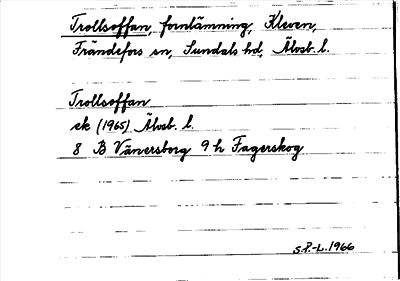 Trollsoffan, fornlämning, Kleven,
Frändefors sn, Sundals hd, Älvsb. l.
Trollsoffan
ek (1965) Älvsb. l.
8 B Vänersborg 9 h Fagerskog
S.P.-L. 1966